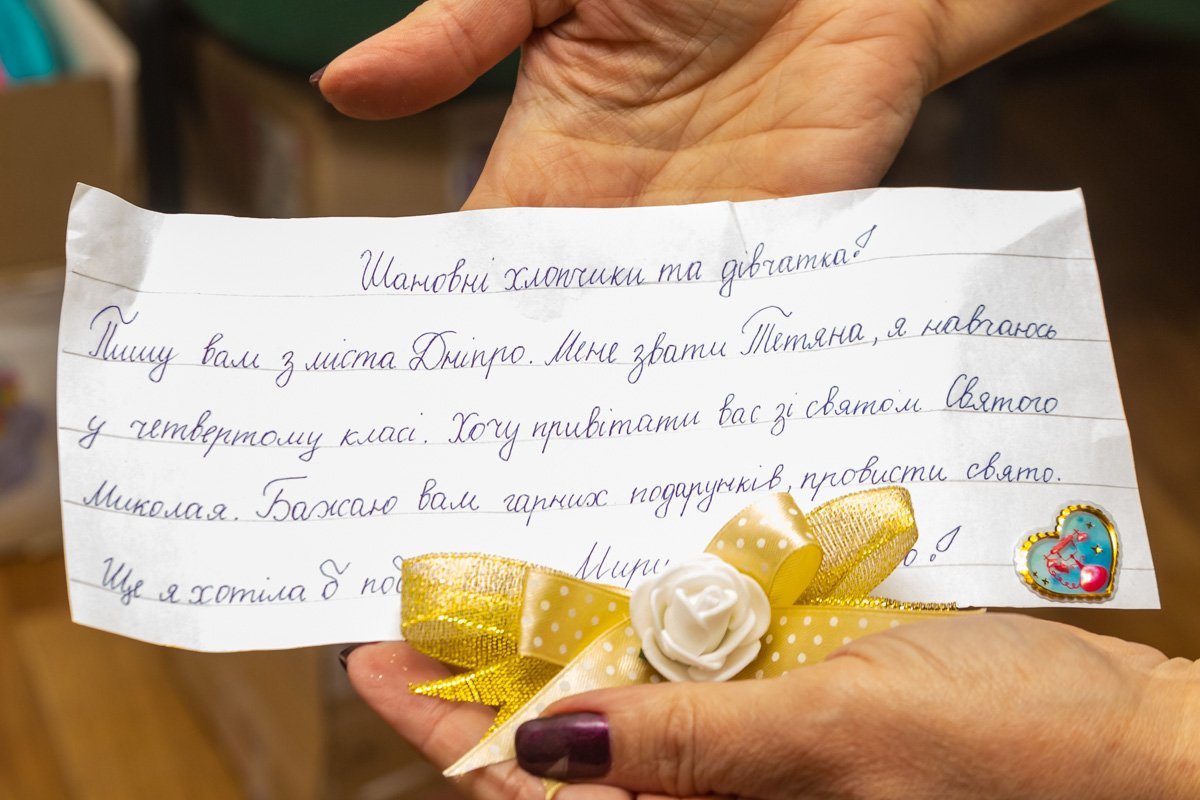 Шановні хлопчики та дівчатка!
Пишу вам з міста Дніпро. Мене звати Тетяна, я навчаюсь
у четвертому класі. Хочу привітати вас зі святом Святого
Миколая. Бажаю вам гарних подарунків, провисти свято.
Ще я хотіла б